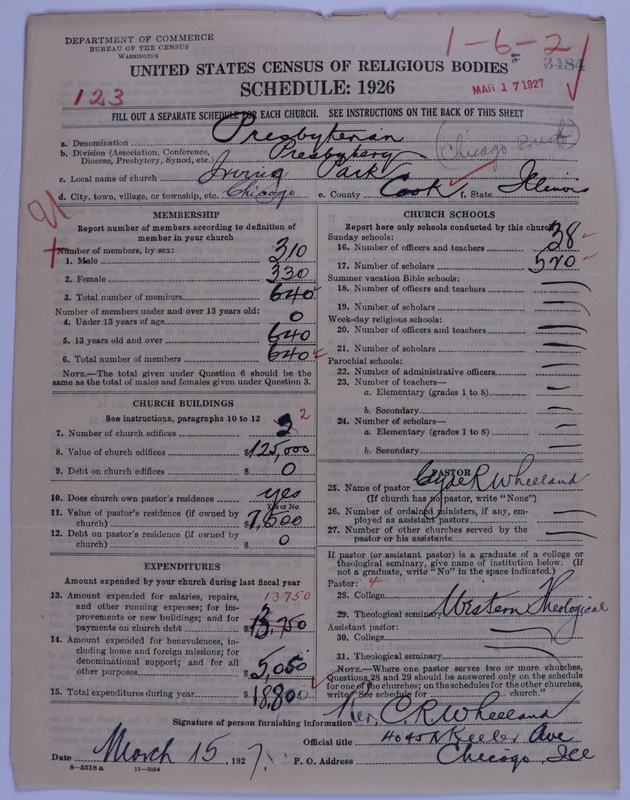 DEPARTMENT OF COMMERCE
BUREAU OF THE CENSUS
WASHINGTON
1-6-2
3484
UNITED STATES CENSUS OF RELIGIOUS BODIES
SCHEDULE: 1926
MAR 17 1927
123
FILL OUT A SEPARATE SCHEDULE FOR EACH CHURCH. SEE INSTRUCTIONS ON THE BACK OF THIS SHEET
a. Denomination Presbyterian
b. Division (Association, Conference, Diocese, Presbytery, Synod, etc.) Presbytery (Chicago
c. Local name of church Irving Park
d. City, town, village, or township, etc. Chicago e. County Cook f. State Illinois
MEMBERSHIP
Report number of members according to definition of
member in your church
Number of members, by sex:
1. Male 310
2. Female 330
3. Total number of members 640
Number of members under and over 13 years old:
4. Under 13 years of age 0
5. 13 years old and over 640
6. Total number of members 640
NOTE.—The total given under Question 6 should be
same as the total of males and females given under Question 3.
CHURCH BUILDINGS
See instructions, paragraphs 10 to 12
7. Number of church edifices 2 2
8. Value of church edifices $125,000
9. Debt on church edifices $ 0
10. Does church own pastor's residence yes
Yes or No
11. Value of pastor's residence (if owned by
church) $7,500
12. Debt on pastor's residence (if owned by
church) $ 0
EXPENDITURES
Amount expended by your church during last fiscal year
13. Amount expended for salaries, repairs, 13750
and other running expenses; for im-
provements or new buildings; and for
payments on church debt $13,750
14. Amount expended for benevolences, in-
cluding home and foreign missions; for
denominational support; and for all
other purposes $5,050
15. Total expenditures during year $18,800
CHURCH SCHOOLS
Report here only schools conducted by this church
Sunday schools:
16. Number of officers and teachers 38
17. Number of scholars 520
Summer vacation Bible schools:
18. Number of officers and teachers —
19. Number of scholars —
Week-day religious schools:
20. Number of officers and teachers —
21. Number of scholars —
Parochial schools:
22. Number of administrative officers —
23. Number of teachers—
a. Elementary (grades 1 to 8) —
b. Secondary —
24. Number of scholars—
a. Elementary (grades 1 to 8) —
b. Secondary —
PASTOR
25. Name of pastor Clyde R Wheeland
(If church has no pastor, write "None")
26. Number of ordained ministers, if any, em-
ployed as assistant pastors —
27. Number of other churches served by the
pastor or his assistants —
If pastor (or assistant pastor) is a graduate of a college or
theological seminary, give name of institution below. (If
not a graduate, write "No" in the space indicated.)
Pastor: 4
28. College
29. Theological seminary Western Theological
Assistant pastor:
30. College —
31. Theological seminary —
NOTE.—Where one pastor serves two or more churches,
Questions 28 and 29 should be answered only on the schedule
for one of the churches; on the schedules for the other churches,
write "See schedule for church."
Signature of person furnishing information Rev. C. R. Wheeland
Official title 4045 N Keeler Ave
Date March 15, 1927. P. O. Address Chicago, Ill
8—5518 a 11—9054